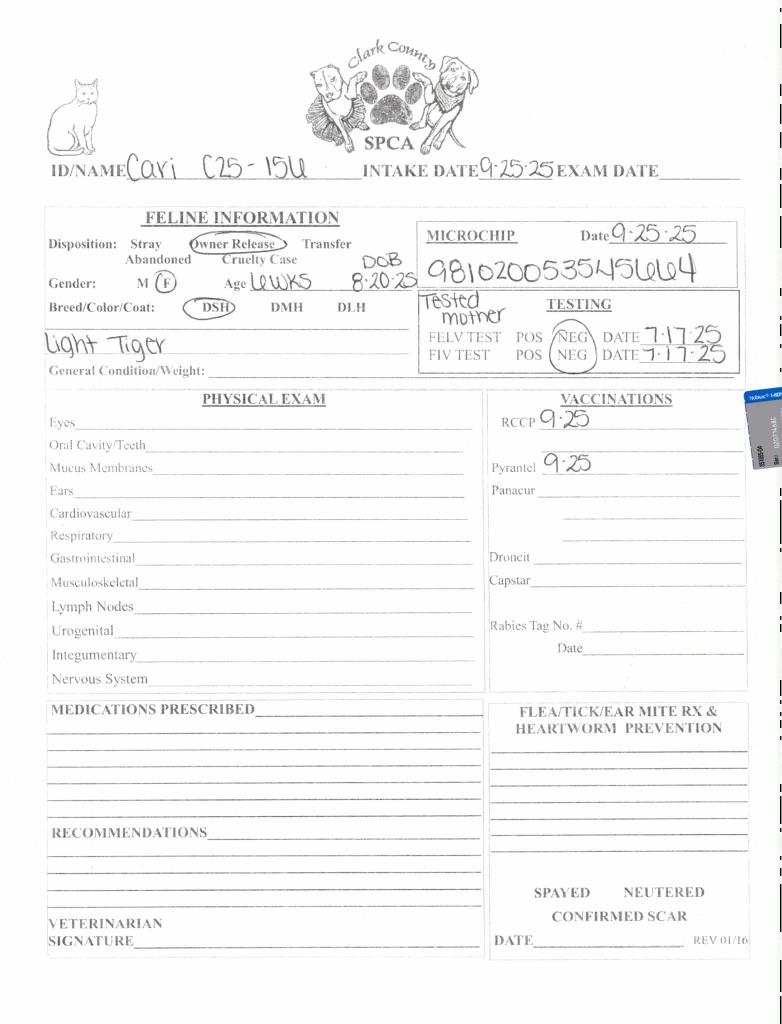 Clark County
SPCA
ID/NAME Cari C25-156 INTAKE DATE 9-25-25 EXAM DATE
FELINE INFORMATION
Disposition: Stray Owner Release Transfer
Abandoned Cruelty Case
DOB
Gender: M F Age 6wks 8-20-25
Breed/Color/Coat: DSH DMH DLH
Light Tiger
General Condition/Weight:
MICROCHIP Date 9-25-25
981020053545664
Tested mother
TESTING
FELV TEST POS NEG DATE 7-17-25
FIV TEST POS NEG DATE 7-17-25
PHYSICAL EXAM
Eyes
Oral Cavity/Teeth
Mucus Membranes
Ears
Cardiovascular
Respiratory
Gastrointestinal
Musculoskeletal
Lymph Nodes
Urogenital
Integumentary
Nervous System
VACCINATIONS
RCCP 9-25
Pyrantel 9-25
Panacur
Droncit
Capstar
Rabies Tag No. #
Date
MEDICATIONS PRESCRIBED
RECOMMENDATIONS
VETERINARIAN
SIGNATURE
FLEA/TICK/EAR MITE RX &
HEARTWORM PREVENTION
SPAYED NEUTERED
CONFIRMED SCAR
DATE REV 01/16